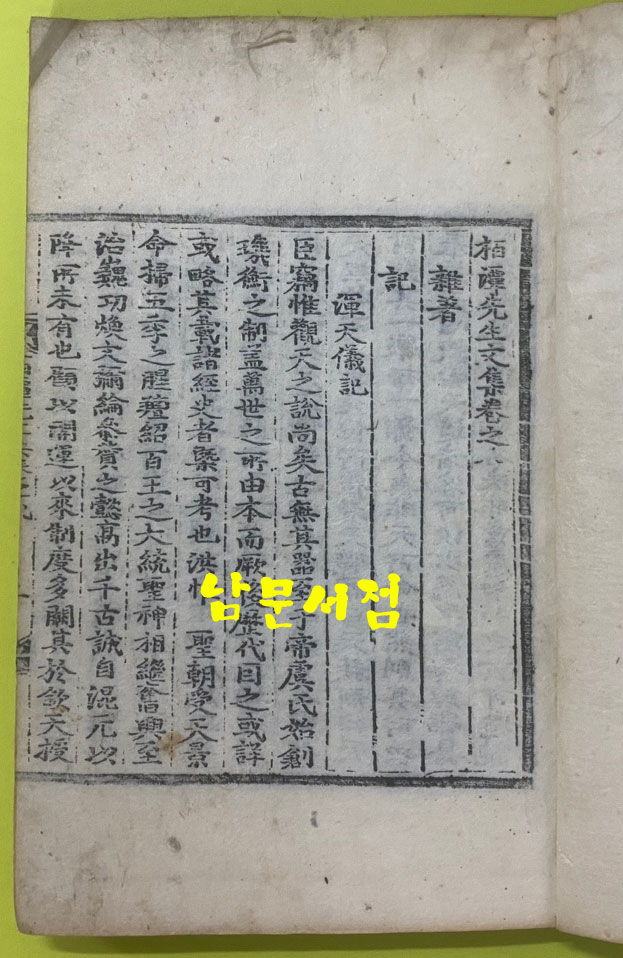 栢潭先生文集卷之六
雜著
記
渾天儀記
臣竊惟觀天之說尚矣古無其器至于帝虞氏始創
璣衡之制盖萬世之所由本而厥後歷代因之或詳
或略其載諸經史者槩可考也洪惟 聖朝受天景
命掃五季之腥羶紹百王之大統聖神相繼奮興至
治巍功煥文彌綸 賁之懿高出千古誠自混元以
降所未有也顧以開運以來制度多闕其於欽天授
남문서점